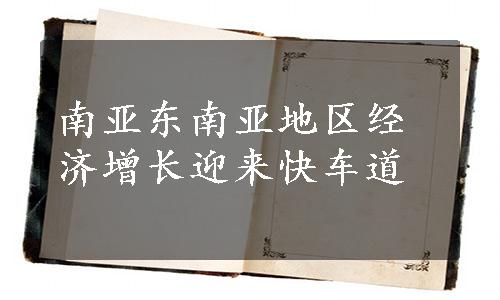 南亚东南亚地区经
济增长迎来快车道